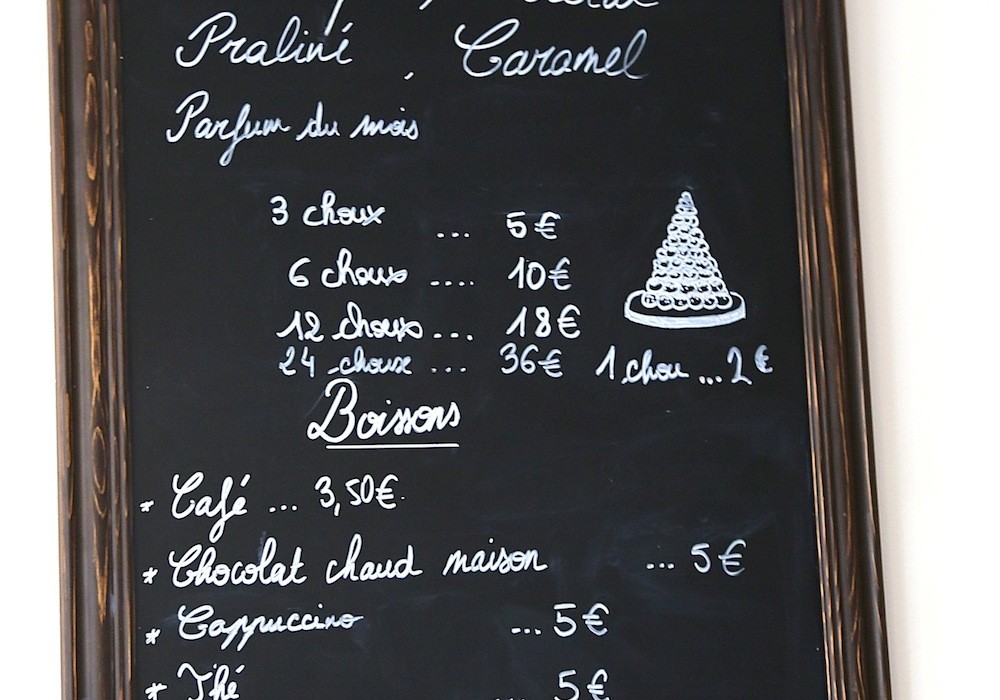 Praliné , Caramel
Parfum du mois
3 choux ... 5€
6 choux .... 10€
12 choux ... 18€
24 choux ... 36€
1 chou ... 2€
Boissons
* Café ... 3,50€
* Chocolat chaud maison ... 5€
* Cappuccino ... 5€
* Thé ... 5€